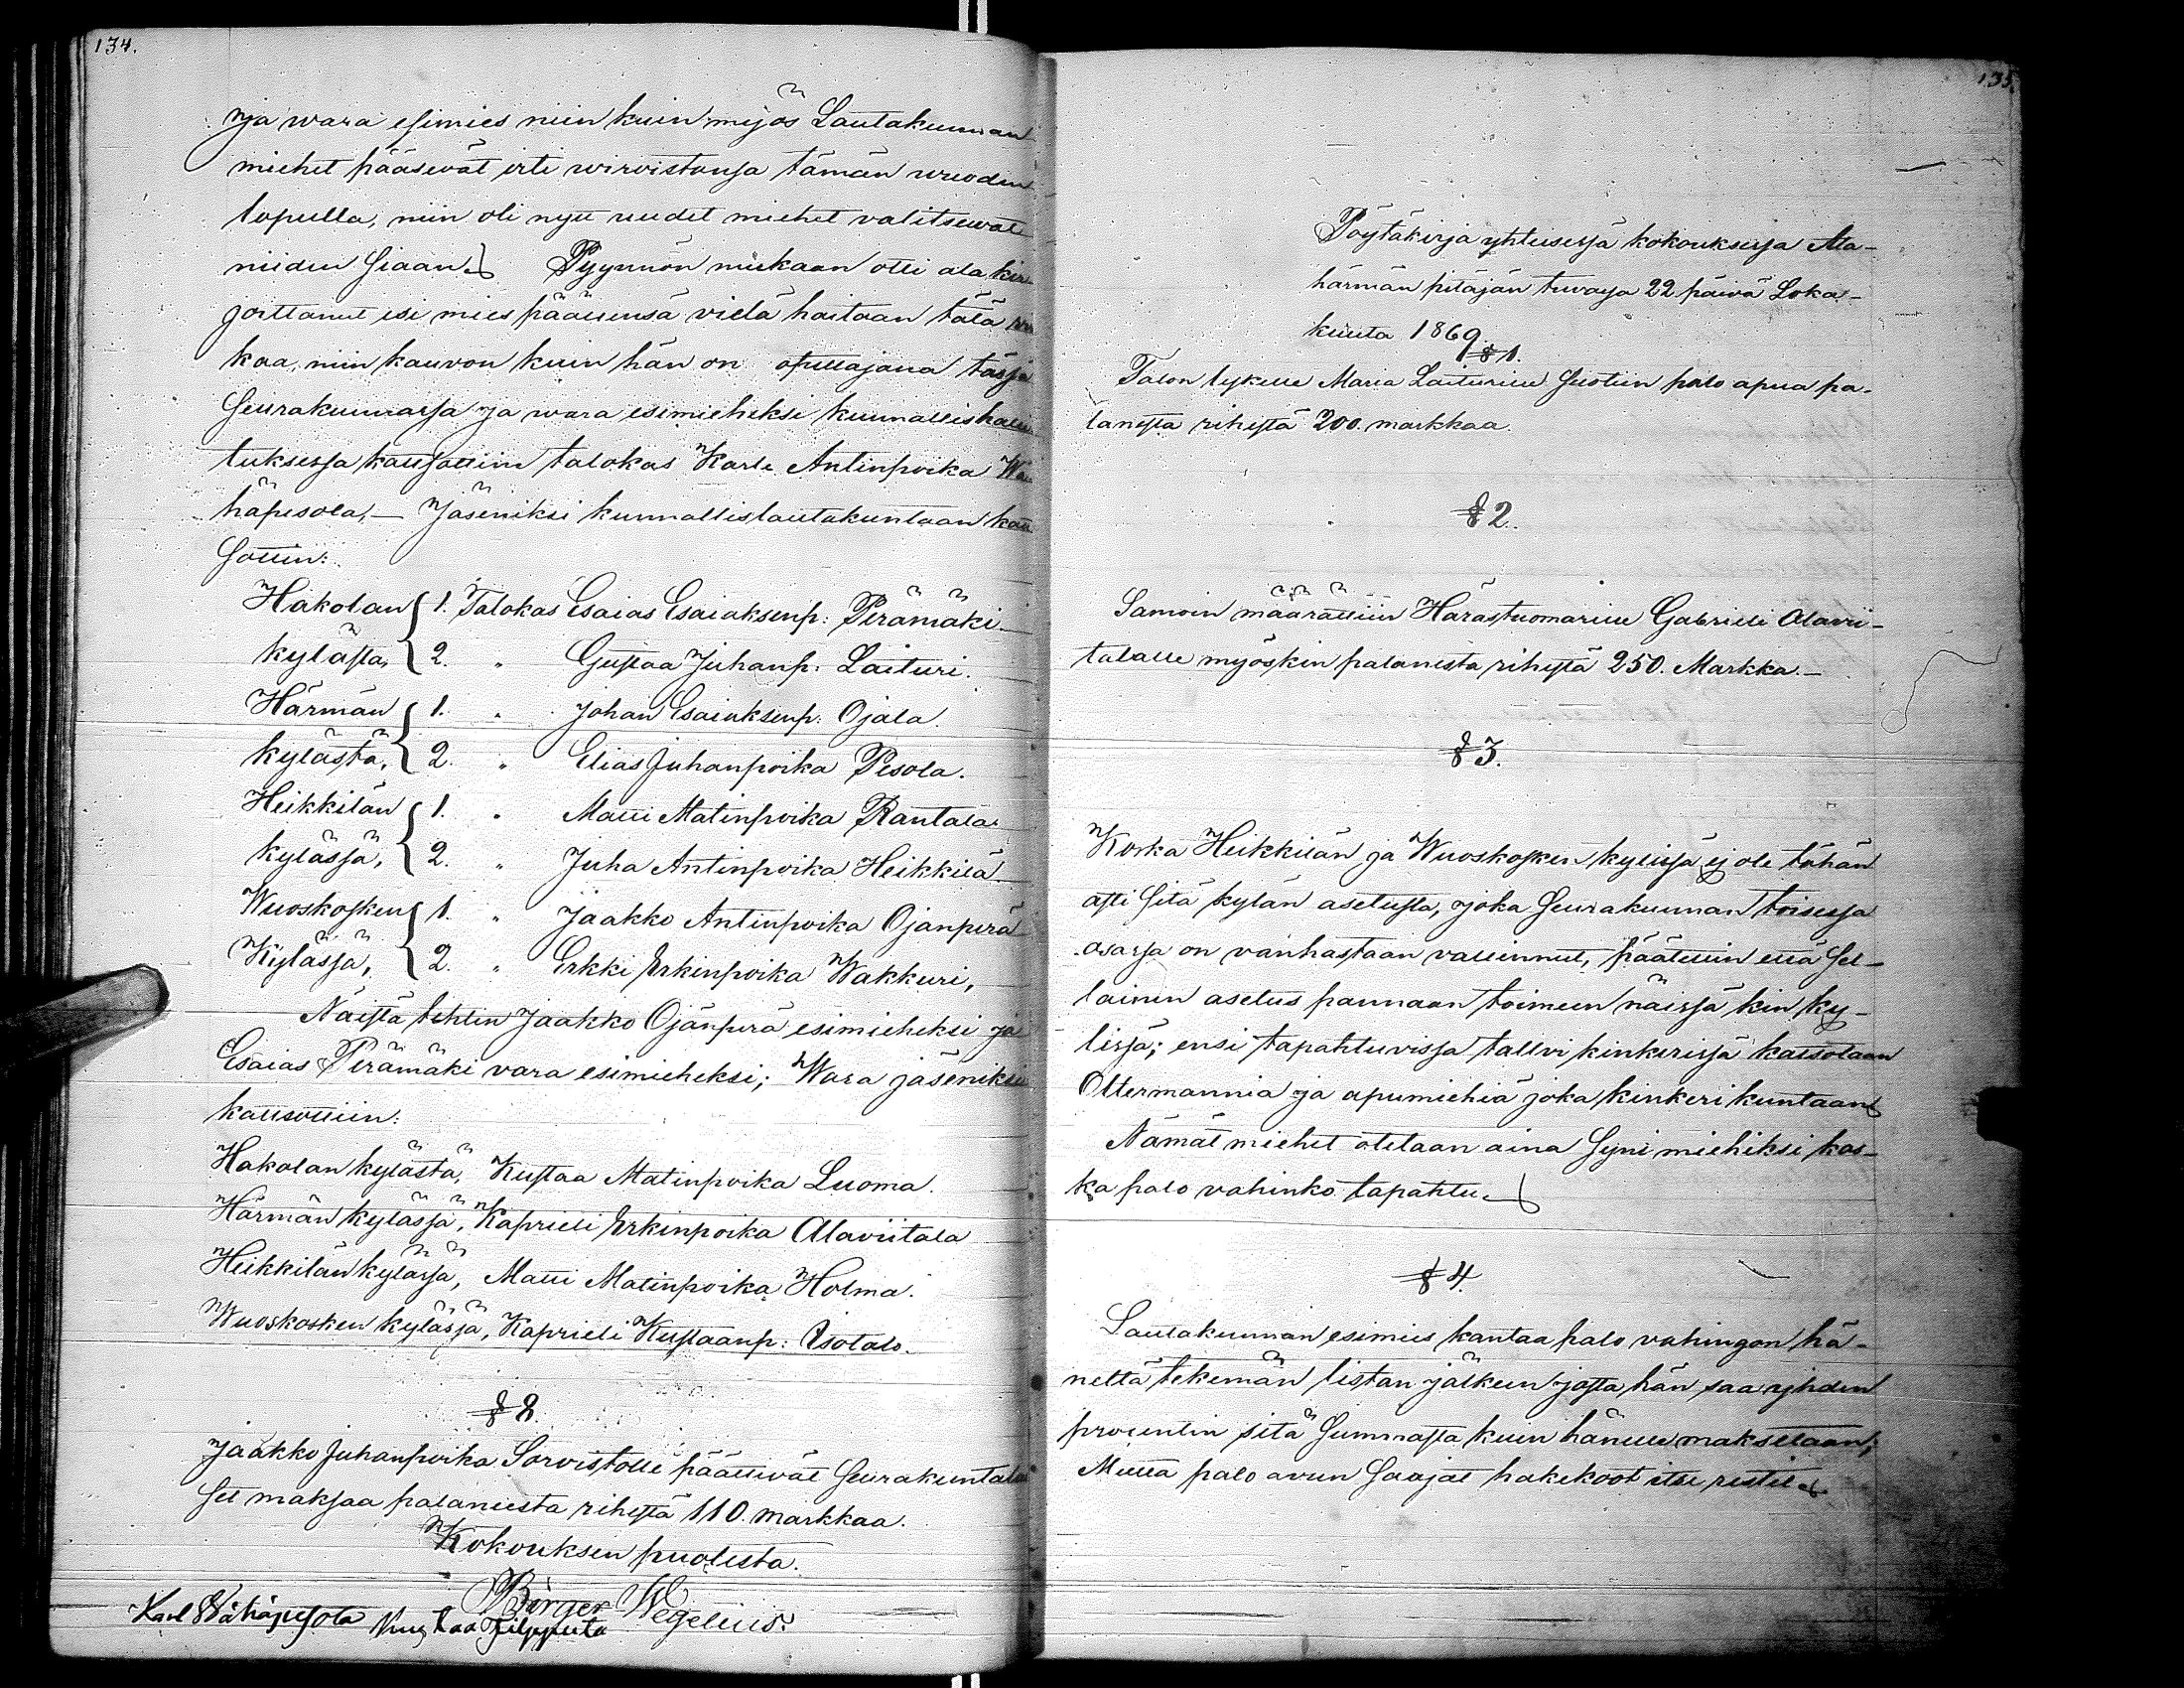 134.
ja wara esimies niin kuin myös Lautakunnan
miehet pääsewät irti wirvistansa tämän wuoden
lopulla, niin oli nyt uudet miehet valitsewat
niiden siaan. Pyynnön mukaan otti ala kir
joittanut esi mies päällensä vielä hoitaan tätä
kaa, niin kauvon kuin hän on opettajana tässä
Seurakunnassa ja wara esimieheksi kunnallishalli
tuksessa katsottiin talokas Karle Antinpoika Wä
häpesola, — Jäseniksi kunnallislautakuntaan kat
sottin:
Hakolan { 1. Talokas Esaias Esaiaksenp: Perämäki
kylästä, { 2. " Gustaa Juhanp: Laituri.
Härmän { 1. " Johan Esaiaksenp: Ojala.
kylästä, { 2. " Elias Juhanpoika Pesola.
Heikkilän { 1. " Matti Matinpoika Rantala
kylässä, { 2. " Juha Antinpoika Heikkilä
Wuoskosken { 1. " Jaakko Antinpoika Ojanperä
Kylässä, { 2. " Erkki Erkinpoika Wakkuri,
Näistä tehtin Jaakko Ojanperä esimieheksi ja
Esaias Perämäki vara esimieheksi; Wara jäseniksi
katsottiin:
Hakolan kylästä, Kustaa Matinpoika Luoma.
Härmän kylässä, Kaprieli Erkinpoika Alaviitala
Heikkilän kylässä, Matti Matinpoika Holma.
Wuoskosken kylässä, Kaprieli Kustaanp: Isotalo.
§ 8.
Jaakko Juhanpoika Sorvistolle päättivät Seurakuntala
set maksaa palaneesta rihestä 110. markkaa.
Kokouksen puolesta.
Börger Wegelius.
Karl Wähäpesola Kustaa Filppula
135.
Pöytäkirja yhteisessä kokouksessa Ala-
härmän pitäjän tuvassa 22 päivä Loka-
kuuta 1869.
§ 1.
Talon lykelle Maria Laiturille suotiin palo apua pa-
lanesta rihestä 200. markkaa.
§ 2.
Samoin määrättiin Härästuomarille Gabrieli Alavii-
talalle myöskin palanesta rihestä 250. Markka.—
§ 3.
Koska Heikkilän ja Wuoskosken kylissä ej ole tähän
asti sitä kylän asetusta, joka Seurakunnan toisessa
osassa on vanhastaan vallinnut, päätettiin että sel-
lainen asetus pannaan toimeen näissä kin ky-
lissä; ensi tapahtuvissa talvi kinkerissä katsotaan
Oltermannia ja apumiehiä joka kinkeri kuntaan
Nämät miehet otetaan aina Syni miehiksi kos-
ka palo vahinko tapahtu.
§ 4.
Lautakunnan esimies kantaa palo vahingon hä-
neltä tekemän listan jälkeen josta hän saa yhden
procentin sitä Summasta kuin hänelle maksetaan;
Mutta palo avun Saajat hakekoot itse restit.